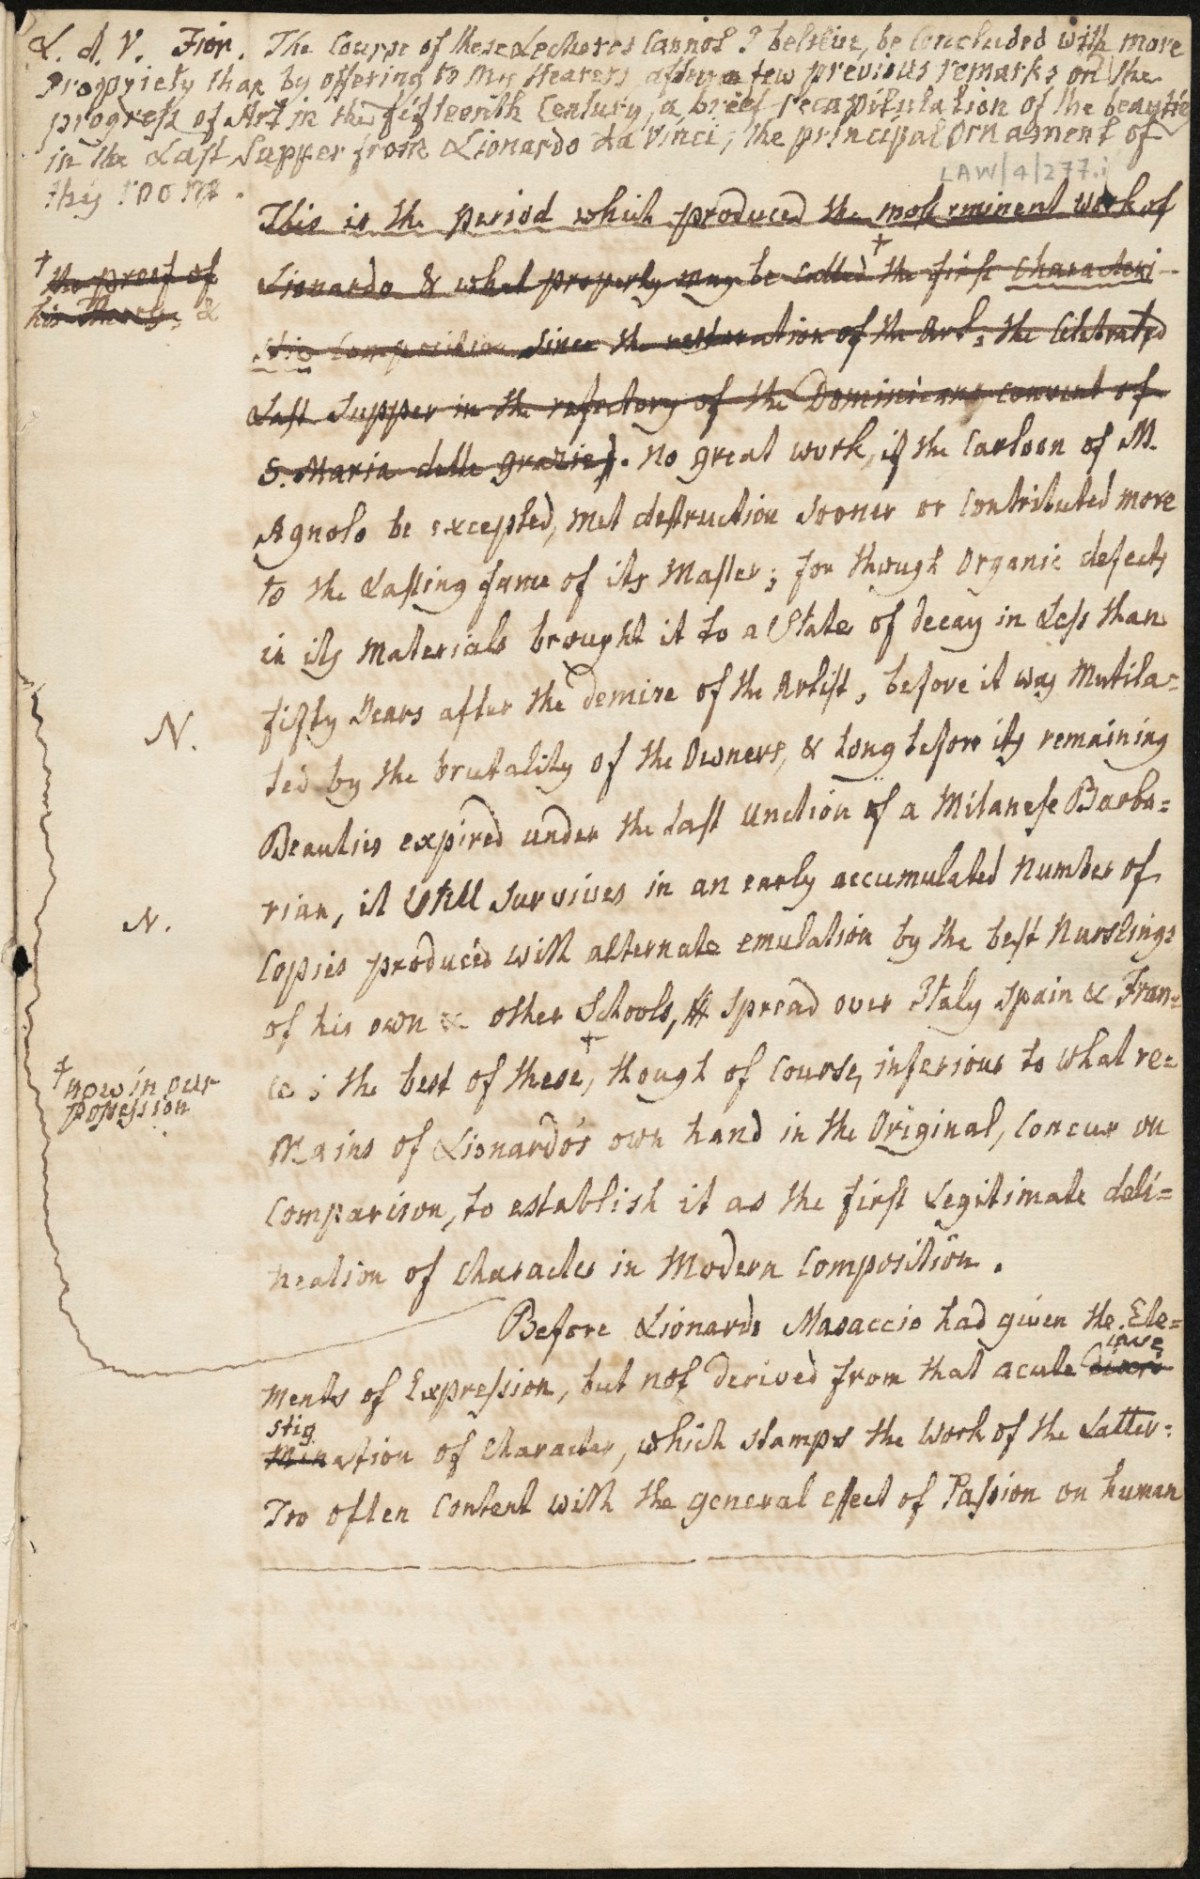 L. d. V. Fior. The Course of these Lectures Cannot I beleive, be Concluded with more
Propriety than by offering to my Hearers, after a few previous remarks on the
progress of Art in the fifteenth Century, a brief recapitulation of the beauties
in the Last Supper from Lionardo da Vinci, the principal Ornament of
this room.
LAW/4/277.i
This is the period which produced the most eminent work of
† the proof of
his Theory, &
Lionardo & what properly may be called † the first Characteri-
stic Composition since the restoration of the Art; the Celebrated
Last Supper in the refectory of the Dominicans convent of
S. Maria delle Grazie). No great work, if the Cartoon of M.
Agnolo be excepted, met destruction sooner or Contributed more
to the Lasting fame of its Master; for though Organic defects
in its Materials brought it to a State of decay in Less than
fifty Years after the demise of the Artist, before it was Mutila=
N.
ted by the brutality of the Owners, & Long before its remaining
Beauties expired under the Last Unction of a Milanese Barba=
rian, it still survives in an early accumulated Number of
N.
Copies produced with alternate emulation by the best Nurslings
of his own & other Schools, & spread over Italy Spain & Fran=
† now in our
possession
ce; the best of these †, though of Course, inferiour to what re=
mains of Lionardo's own hand in the Original, Concur on
Comparison, to establish it as the first Legitimate deli=
neation of Character in Modern Composition.
Before Lionardo Masaccio had given the Ele=
inve
ments of Expression, but not derived from that acute
stig
mination of Character, which stamps the Work of the Latter:
Too often Content with the general effect of Passion on human